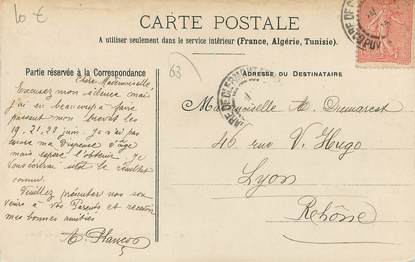 10 €
CARTE POSTALE
A utiliser seulement dans le service intérieur (France, Algérie, Tunisie).
Partie réservée à la Correspondance
63
ADRESSE DU DESTINATAIRE
Chère Mademoiselle,
Excusez mon silence mais
j'ai eu beaucoup à faire
passant mon brevet les
19, 21, 28 juin. Je n'ai pas
encore ma Dispense d'âge
mais espère l'obtenir. Je
vous écrirai sitôt le résultat
connu.
Veuillez présenter nos sou
venirs à vos Parents et recevoir
mes bonnes amitiés
Mademoiselle A.
46 rue V. Hugo
Lyon
Rhône
GARE DE